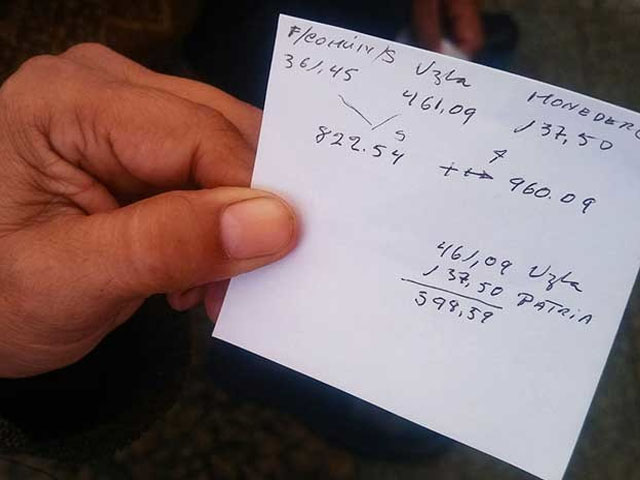 F/COMÚN/S Vzla MONEDERO
361,45 461,09 137,50
822.54 960.09
461,09 Vzla
137,50 PATRIA
598,59